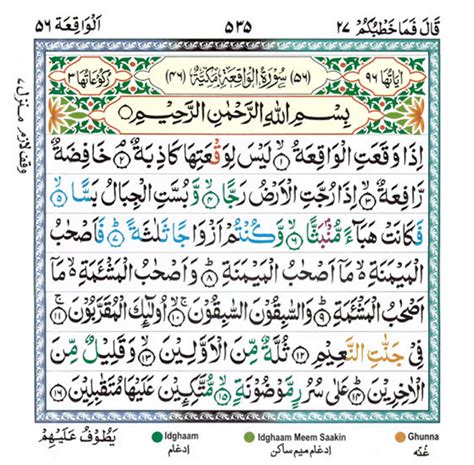 قَالَ فَمَا خَطْبُكُمْ ٢٧ ٥٣٥ اَلْوَاقِعَة ٥٦
اٰيَاتُهَا ٩٦ (٥٦) سُوْرَةُ الْوَاقِعَةِ مَكِّيَّةٌ (٤٦) رُكُوْعَاتُهَا ٣
بِسْمِ اللّٰهِ الرَّحْمٰنِ الرَّحِيْمِ
اِذَا وَقَعَتِ الْوَاقِعَةُ ۙ‏١ لَيْسَ لِوَقْعَتِهَا كَاذِبَةٌ ۘ‏٢ خَافِضَةٌ
رَّافِعَةٌ ۙ‏٣ اِذَا رُجَّتِ الْاَرْضُ رَجًّا ۙ‏٤ وَّبُسَّتِ الْجِبَالُ بَسًّا ۙ‏٥
فَكَانَتْ هَبَآءً مُّنْۢبَثًّا ۙ‏٦ وَّكُنْتُمْ اَزْوَاجًا ثَلٰثَةً ؕ‏٧ فَاَصْحٰبُ
الْمَيْمَنَةِ ۙ مَاۤ اَصْحٰبُ الْمَيْمَنَةِ ؕ‏٨ وَاَصْحٰبُ الْمَشْـَٔمَةِ ۙ مَاۤ
اَصْحٰبُ الْمَشْـَٔمَةِ ؕ‏٩ وَالسّٰبِقُوْنَ السّٰبِقُوْنَ ۙ‏١٠ اُولٰٓئِكَ الْمُقَرَّبُوْنَ ۚ‏١١
فِيْ جَنّٰتِ النَّعِيْمِ ١٢ ثُلَّةٌ مِّنَ الْاَوَّلِيْنَ ۙ‏١٣ وَقَلِيْلٌ مِّنَ
الْاٰخِرِيْنَ ؕ‏١٤ عَلٰى سُرُرٍ مَّوْضُوْنَةٍ ۙ‏١٥ مُّتَّكِـِٕيْنَ عَلَيْهَا مُتَقٰبِلِيْنَ ١٦
يَطُوْفُ عَلَيْهِمْ
Idghaam
ادغام
Idghaam Meem Saakin
ادغام ميم ساكن
Ghunna
غُنّه
وقف لازم منزل ٧